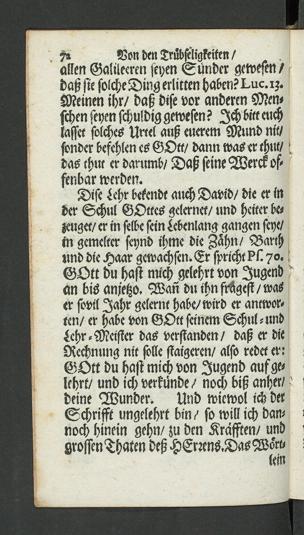 72 Von den Trübseligkeiten /
allen Galileeren seyen Sünder gewesen /
daß sie solche Ding erlitten haben? Luc. 13.
Meinen ihr / daß dise vor anderen Men-
schen seyen schuldig gewesen? Ich bitt euch
lasset solches Urtel auß euerem Mund nit /
sonder befehlen es GOtt / dann was er thut /
das thut er darumb / Daß seine Werck of-
fenbar werden.
Dise Lehr bekendt auch David / die er in
der Schul GOttes gelernet / und heiter be-
zeuget / er in selbe sein Lebenlang gangen seye /
in gemelter seynd ihme die Zähn / Barth
und die Haar gewachsen. Er spricht Ps. 70.
GOtt du hast mich gelehrt von Jugend
an bis anjetzo. Wañ du ihn frägest / was
er sovil Jahr gelernt habe / wird er antwor-
ten / er habe von GOtt seinem Schul- und
Lehr-Meister das verstanden / daß er die
Rechnung nit solle staigeren / also redet er:
GOtt du hast mich von Jugend auf ge-
lehrt / und ich verkünde / noch biß anher /
deine Wunder. Und wiewol ich der
Schrifft ungelehrt bin / so will ich dan-
noch hinein gehn / zu den Kräfften / und
grossen Thaten deß HErrens. Das Wört-
lein